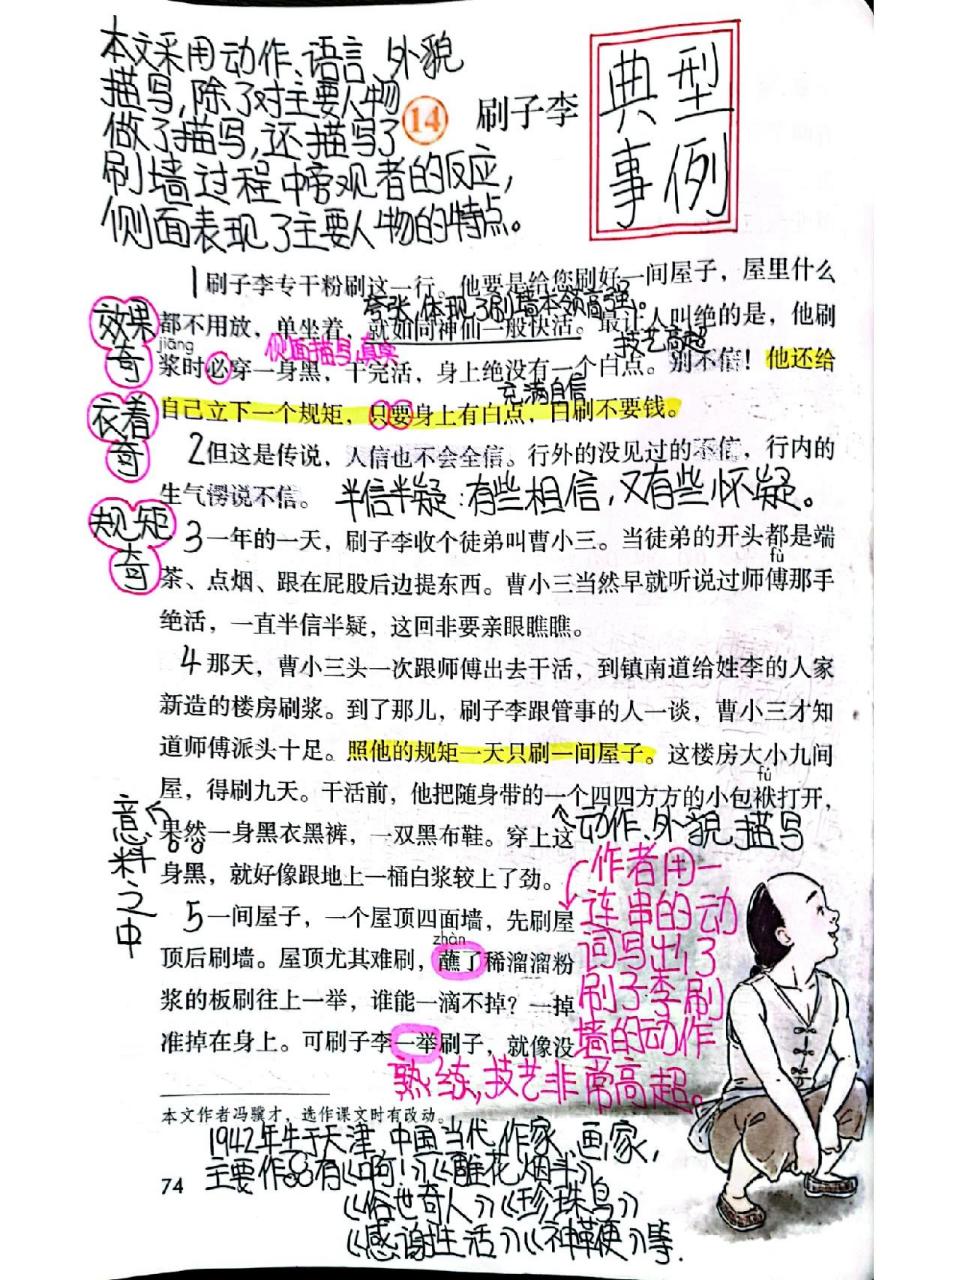 本文采用动作、语言、外貌
描写,除了对主要人物
做了描写,还描写了
刷墙过程中旁观者的反应,
侧面表现了主要人物的特点。
14 刷子李
典型
事例
1刷子李专干粉刷这一行。他要是给您刷好一间屋子，屋里什么
夸张,体现了刷墙本领高强。
都不用放，单坐着，就如同神仙一般快活。最让人叫绝的是，他刷
jiāng
侧面描写,真实
技艺高超
浆时必穿一身黑，干完活，身上绝没有一个白点。别不信！他还给
充满自信
自己立下一个规矩，只要身上有白点，白刷不要钱。
效果
奇
衣着
奇
规矩
奇
2但这是传说，人信也不会全信。行外的没见过的不信，行内的
生气愣说不信。
半信半疑:有些相信,又有些怀疑。
3一年的一天，刷子李收个徒弟叫曹小三。当徒弟的开头都是端
fù
茶、点烟、跟在屁股后边提东西。曹小三当然早就听说过师傅那手
绝活，一直半信半疑，这回非要亲眼瞧瞧。
4那天，曹小三头一次跟师傅出去干活，到镇南道给姓李的人家
新造的楼房刷浆。到了那儿，刷子李跟管事的人一谈，曹小三才知
道师傅派头十足。照他的规矩一天只刷一间屋子。这楼房大小九间
fú
屋，得刷九天。干活前，他把随身带的一个四四方方的小包袱打开，
果然一身黑衣黑裤，一双黑布鞋。穿上这
动作、外貌描写
身黑，就好像跟地上一桶白浆较上了劲。
意料之中
5一间屋子，一个屋顶四面墙，先刷屋
zhàn
顶后刷墙。屋顶尤其难刷，蘸了稀溜溜粉
浆的板刷往上一举，谁能一滴不掉？一掉
准掉在身上。可刷子李一举刷子，就像没
作者用一
连串的动
词写出了
刷子李刷
墙的动作
熟练,技艺非常高超。
本文作者冯骥才，选作课文时有改动。
1942年生于天津,中国当代作家、画家,
主要作品有《啊!》《雕花烟斗》
《俗世奇人》《珍珠鸟》
《感谢生活》《神鞭》等.
74